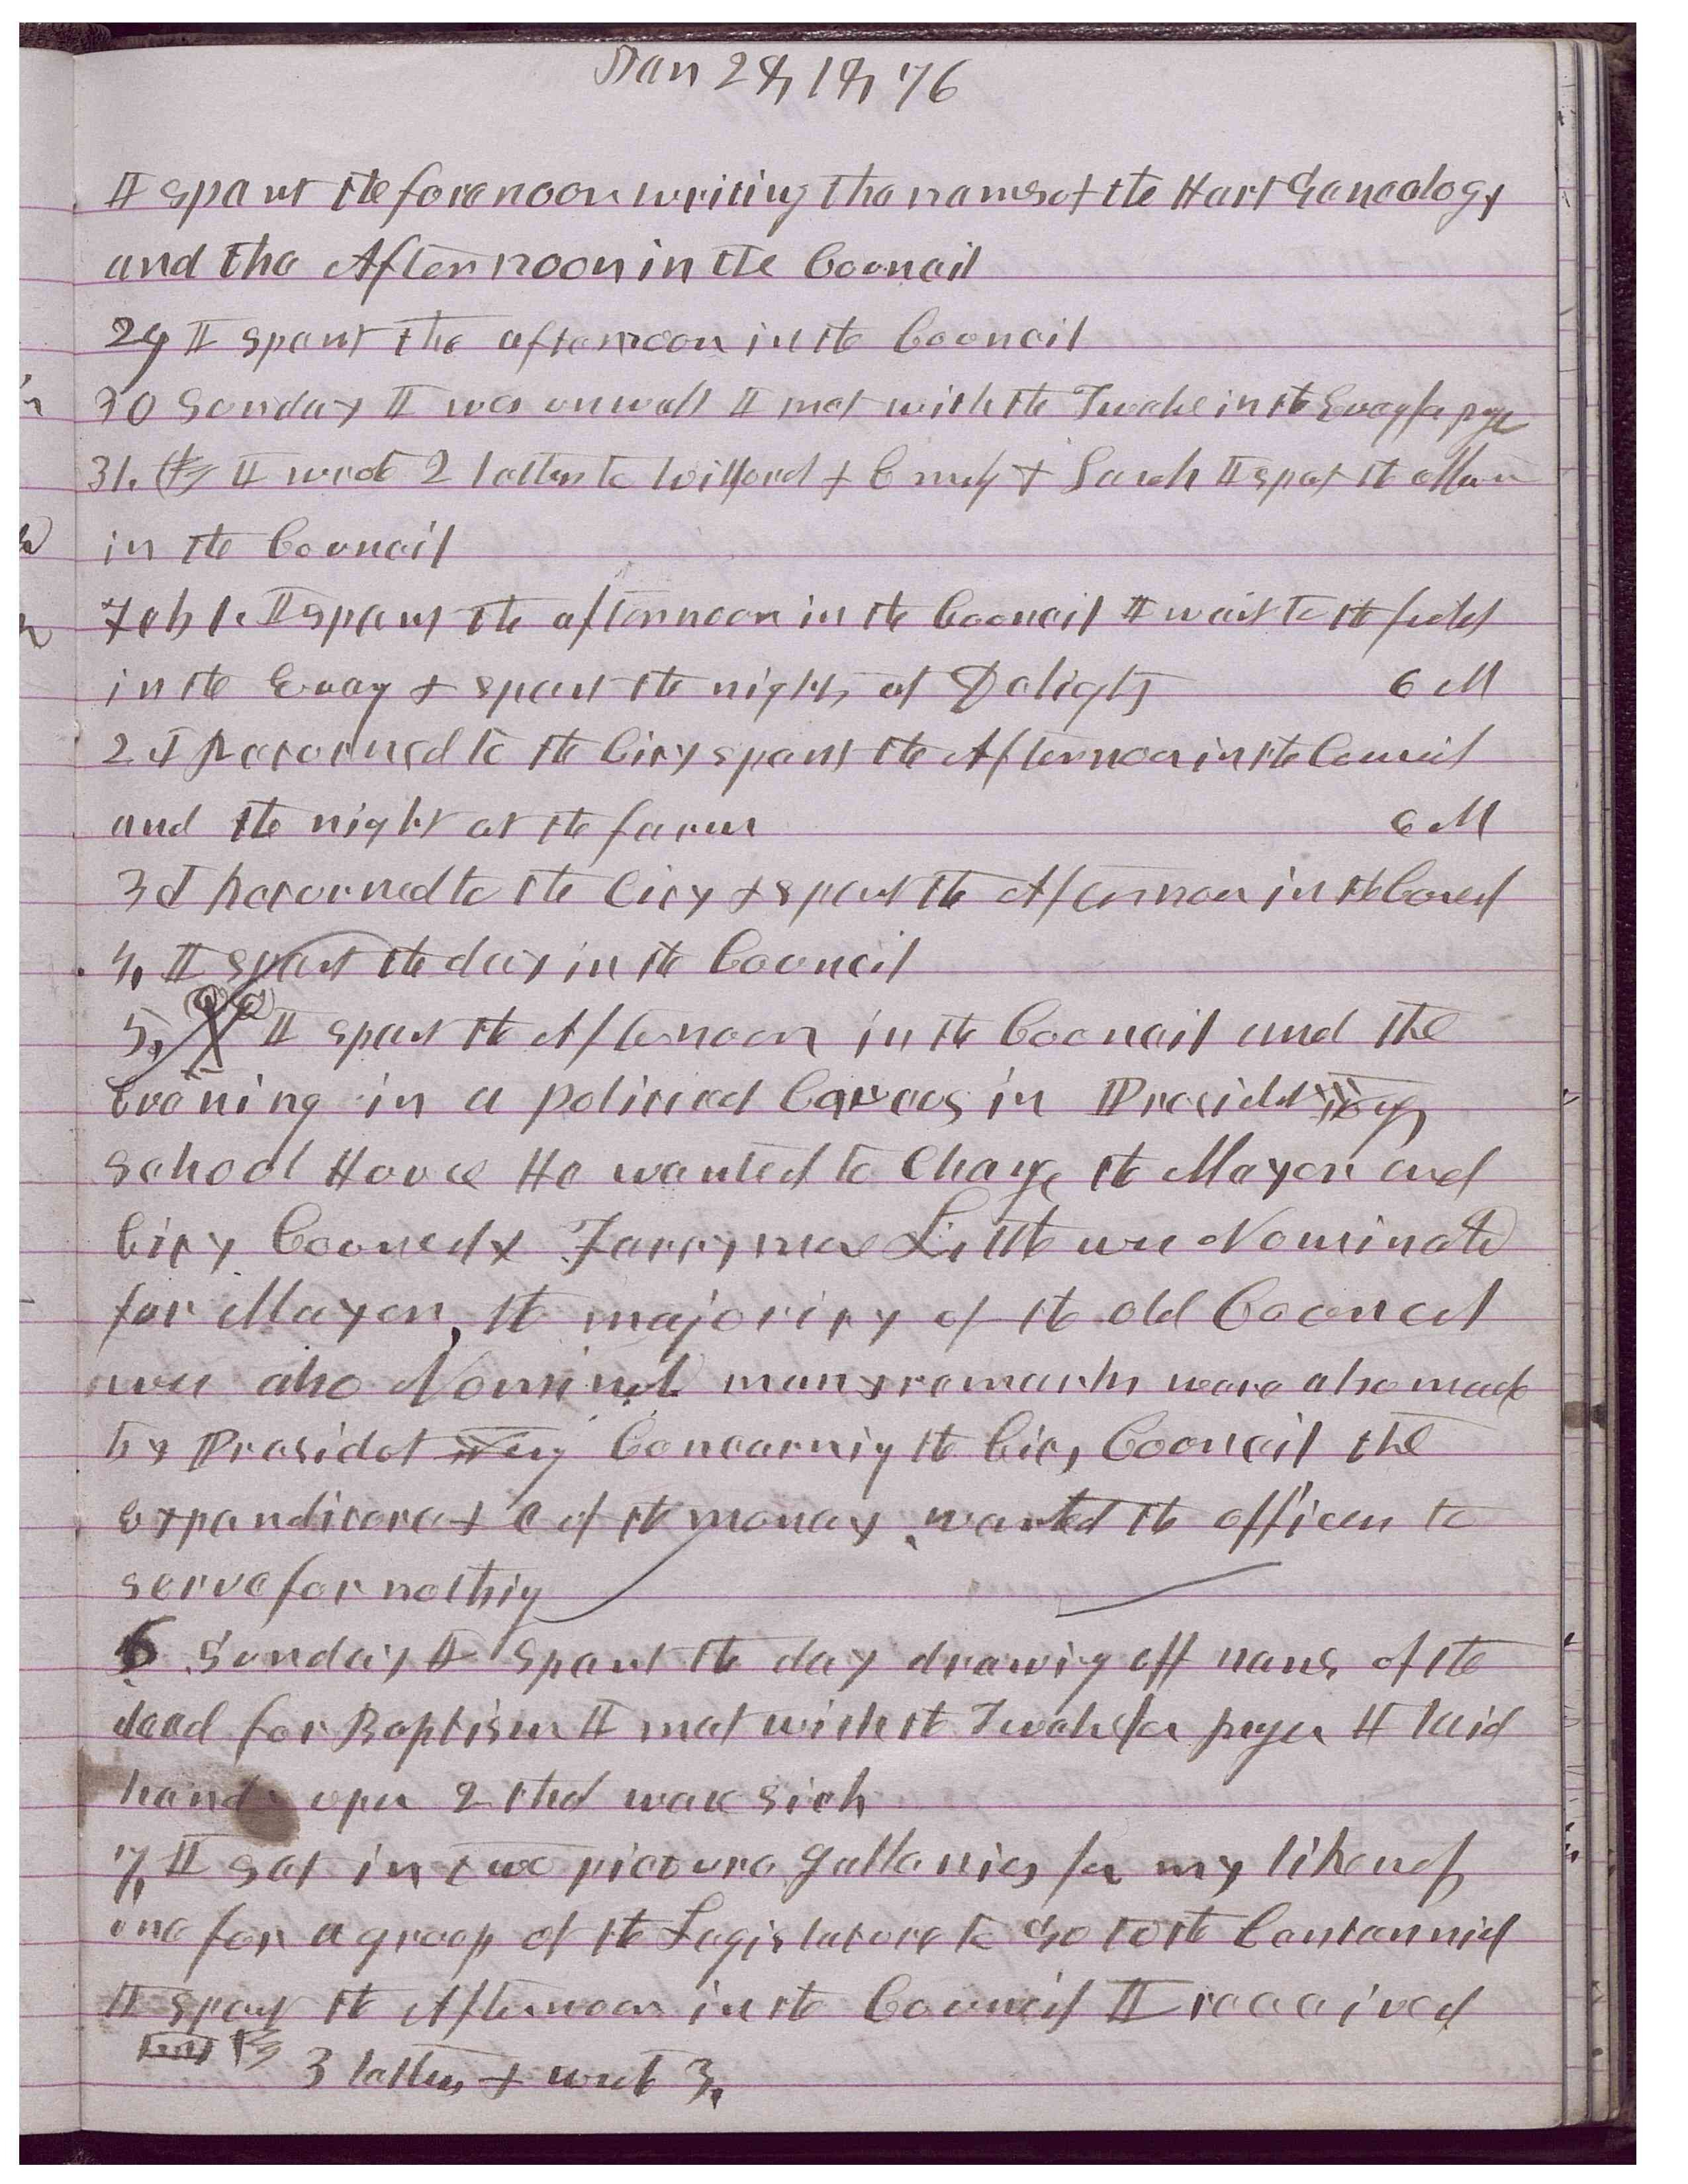 Jan 28, 1876
I spent the forenoon writing the names of the Hart Genealogy
and the Afternoon in the Council
29 I spent the afternoon in the Council
30 Sunday I was unwell I met with the Twelve in the Evng for prayer
31. I wrote 2 letters to Wilford & Emily & Sarah I spent the aftern
in the Council
Feb 1. I spent the afternoon in the Council I went to the field
in the Evng & spent the night, at Delights 6 M
2d I Returned to the City spent the Afternoon in the Council
and the night at the farm 6 M
3d I Returned to the City & spent the Afternoon in the Council
4, I spent the day in the Council
5, I spent the Afternoon in the Council and the
Evening in a political Caucus in Presidet Yog
School House He wanted to Change the Mayor and
City Council & Farrymore Little was Nominated
for Mayor, the majority of the old Council
was also Nominated many remarks were also made
by Presidet Yug Concerning the City Council the
Expenditure & C of the money wanted the officers to
serve for nothig
6 Sunday I spent the day drawig off names of the
dead for Baptism I met with the Twelve for prayer I laid
hands upon 2 that were sick
7, I sat in two picture galleries for my likeness
one for a group of the Legislature to go to the Centannial
I spent the Afternoon in the Council I received
3 letters & wrote 3,